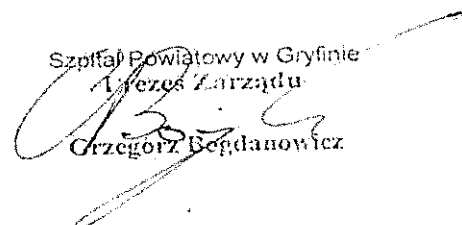 Szpital Powiatowy w Gryfinie
Prezes Zarządu
Grzegorz Bogdanowicz